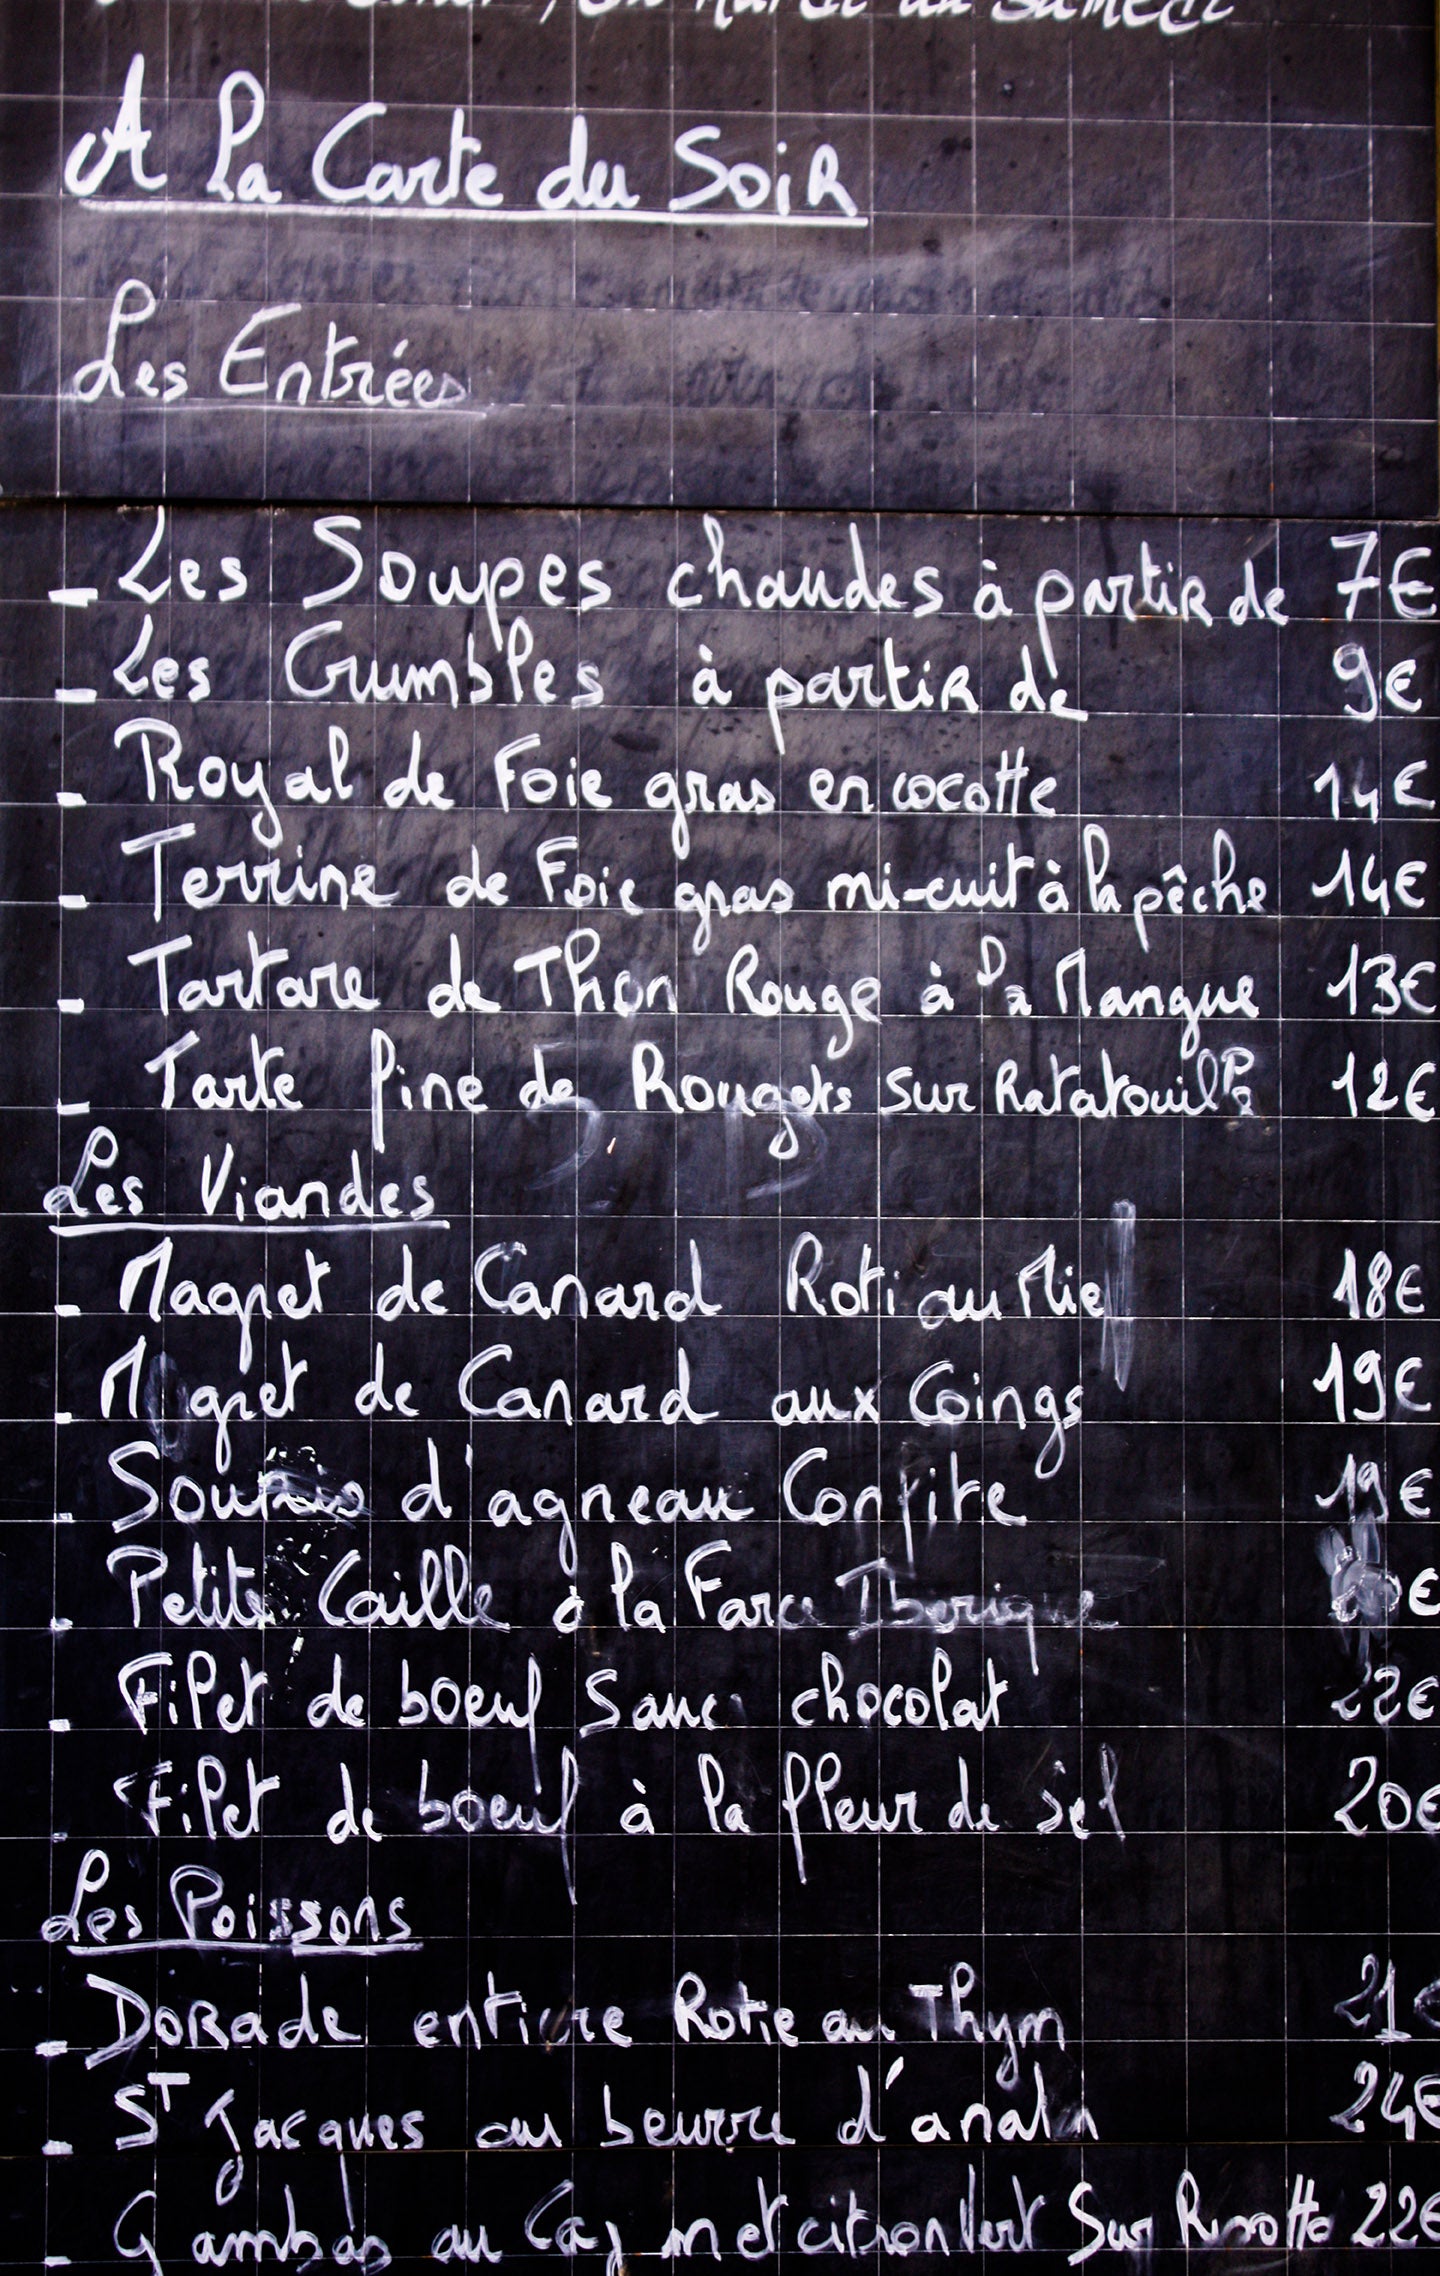 du Mardi au Samedi
A la Carte du Soir
Les Entrées
- Les Soupes chaudes à partir de 7€
- Les Crumbles à partir de 9€
- Royal de Foie gras en cocotte 14€
- Terrine de Foie gras mi-cuit à la pêche 14€
- Tartare de Thon Rouge à la Mangue 13€
- Tarte fine de Rougets sur Ratatouille 12€
Les Viandes
- Magret de Canard Roti au Miel 18€
- M gret de Canard aux Coings 19€
- Souris d'agneau Confite 19€
- Petite Caille à la Farce Iberique €
- Filet de boeuf Sauce chocolat 22€
- Filet de boeuf à la fleur de sel 20€
Les Poissons
- Dorade entiere Rotie au Thym 21€
- St Jacques au beurre d'
- Gambas au et citron Vert Sur Risotto 22€